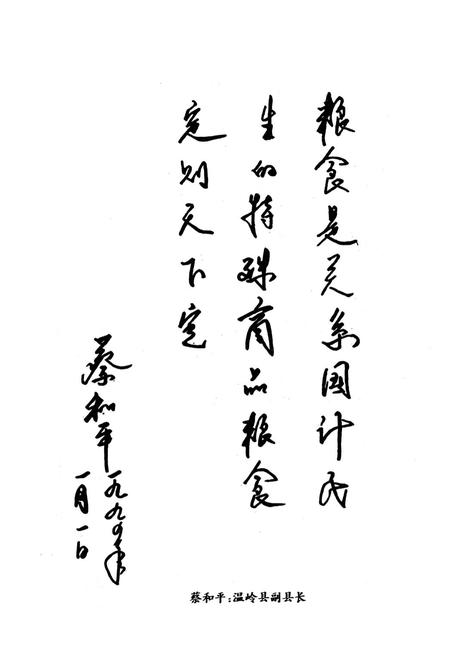 粮食是关系国计民
生的特殊商品粮食
定则天下定
蔡和平
一九九四年
一月一日
蔡和平：温岭县副县长